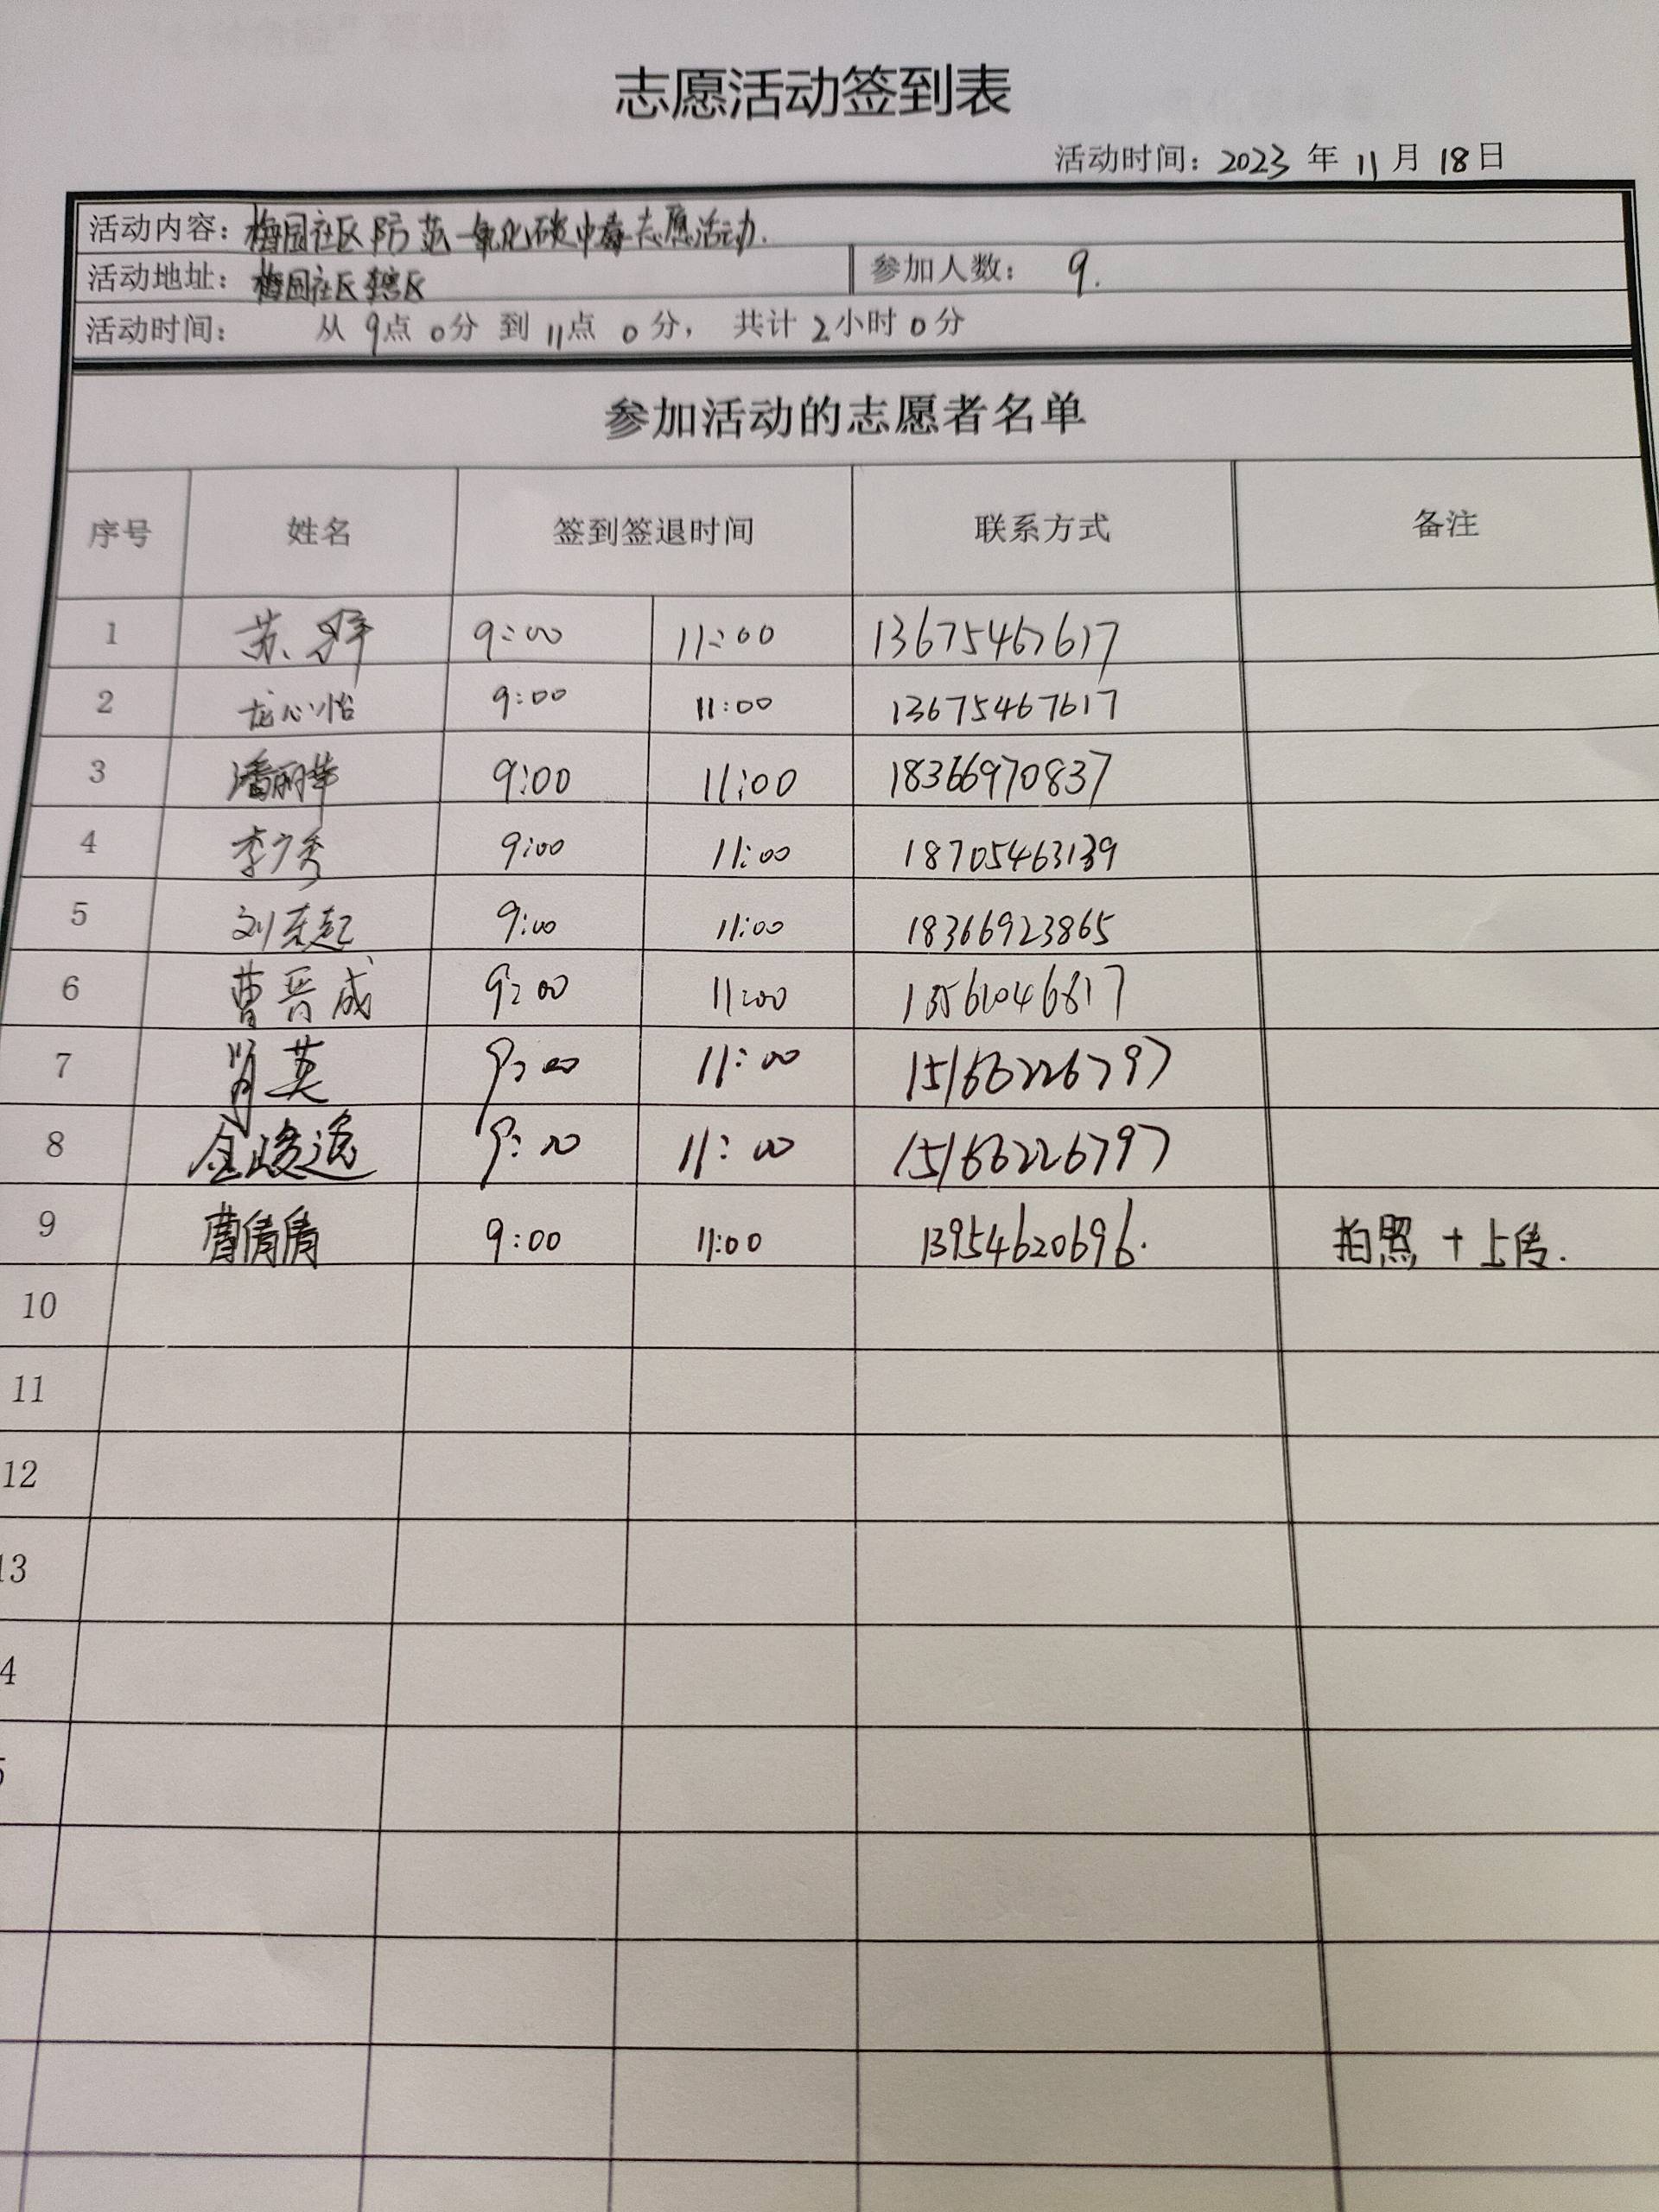 志愿活动签到表
活动时间：2023 年 11 月 18 日
活动内容：梅园社区防范一氧化碳中毒志愿活动.
活动地址：梅园社区辖区 参加人数： 9.
活动时间： 从 9点 0分 到 11点 0分， 共计 2小时 0分
参加活动的志愿者名单
序号 姓名 签到签退时间 联系方式 备注
1 苏 9:00 11:00 13675467617
2 龙心怡 9:00 11:00 13675467617
3 潘丽华 9:00 11:00 18366970837
4 李广秀 9:00 11:00 18705463139
5 刘东起 9:00 11:00 18366923865
6 曹晋成 9:00 11:00 13561046817
7 肖英 9:00 11:00 15166226797
8 金峻逸 9:00 11:00 15166226797
9 曹倩倩 9:00 11:00 13954620696. 拍照 + 上传.
10
11
12
13
4
5